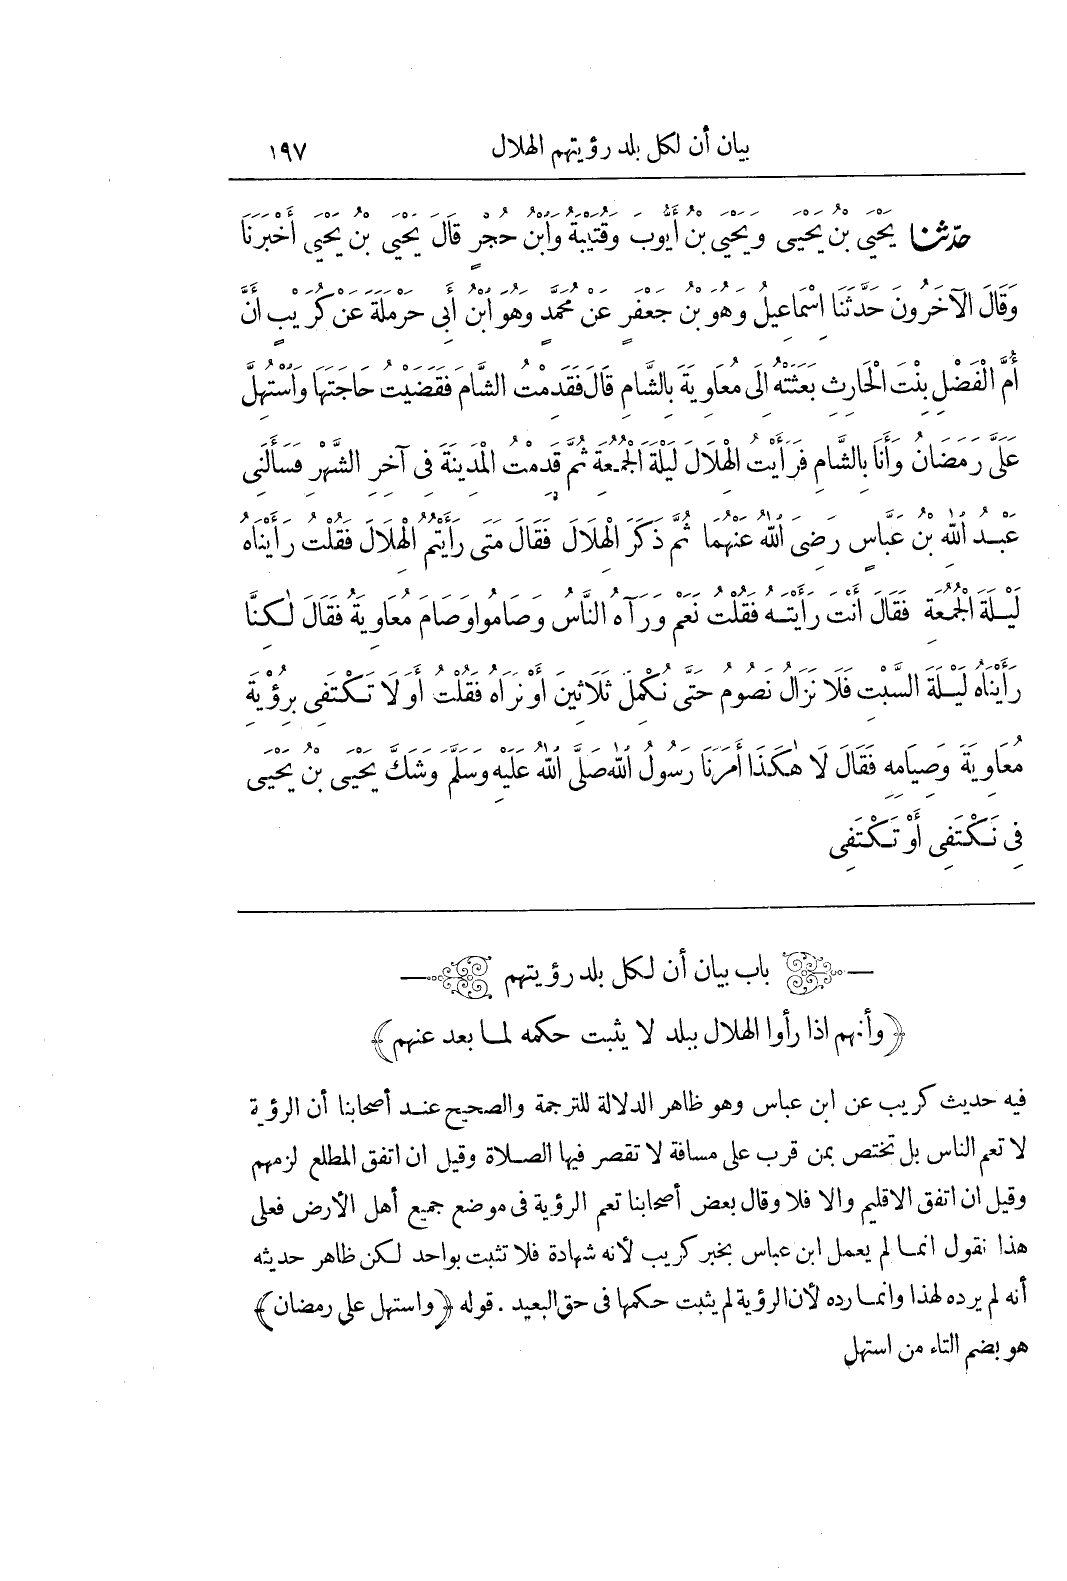 بيان أن لكل بلد رؤيتهم الهلال ١٩٧
حدّثنا يَحْيَى بْنُ يَحْيَى وَيَحْيَى بْنُ أَيُّوبَ وَقُتَيْبَةُ وَابْنُ حُجْرٍ قَالَ يَحْيَى بْنُ يَحْيَى أَخْبَرَنَا
وَقَالَ الْآخَرُونَ حَدَّثَنَا إِسْمَاعِيلُ وَهُوَ بْنُ جَعْفَرٍ عَنْ مُحَمَّدٍ وَهُوَ ابْنُ أَبِى حَرْمَلَةَ عَنْ كُرَيْبٍ أَنَّ
أُمَّ الْفَضْلِ بِنْتَ الْحَارِثِ بَعَثَتْهُ إِلَى مُعَاوِيَةَ بِالشَّامِ قَالَ فَقَدِمْتُ الشَّامَ فَقَضَيْتُ حَاجَتَهَا وَاسْتُهِلَّ
عَلَىَّ رَمَضَانُ وَأَنَا بِالشَّامِ فَرَأَيْتُ الْهِلَالَ لَيْلَةَ الْجُمُعَةِ ثُمَّ قَدِمْتُ الْمَدِينَةَ فِى آخِرِ الشَّهْرِ فَسَأَلَنِى
عَبْدُ اللّٰهِ بْنُ عَبَّاسٍ رَضِىَ اللّٰهُ عَنْهُمَا ثُمَّ ذَكَرَ الْهِلَالَ فَقَالَ مَتَى رَأَيْتُمُ الْهِلَالَ فَقُلْتُ رَأَيْنَاهُ
لَيْلَةَ الْجُمُعَةِ فَقَالَ أَنْتَ رَأَيْتَهُ فَقُلْتُ نَعَمْ وَرَآهُ النَّاسُ وَصَامُوا وَصَامَ مُعَاوِيَةُ فَقَالَ لٰكِنَّا
رَأَيْنَاهُ لَيْلَةَ السَّبْتِ فَلَا نَزَالُ نَصُومُ حَتَّى نُكْمِلَ ثَلَاثِينَ أَوْ نَرَاهُ فَقُلْتُ أَوَ لَا تَكْتَفِى بِرُؤْيَةِ
مُعَاوِيَةَ وَصِيَامِهِ فَقَالَ لَا هٰكَذَا أَمَرَنَا رَسُولُ اللّٰهِ صَلَّى اللّٰهُ عَلَيْهِ وَسَلَّمَ وَشَكَّ يَحْيَى بْنُ يَحْيَى
فِى نَكْتَفِى أَوْ تَكْتَفِى
باب بيان أن لكل بلد رؤيتهم
﴿وأنهم اذا رأوا الهلال ببلد لا يثبت حكمه لما بعد عنهم﴾
فيه حديث كريب عن ابن عباس وهو ظاهر الدلالة للترجمة والصحيح عند أصحابنا أن الرؤية
لا تعم الناس بل تختص بمن قرب على مسافة لا تقصر فيها الصلاة وقيل ان اتفق المطلع لزمهم
وقيل ان اتفق الاقليم والا فلا وقال بعض أصحابنا تعم الرؤية فى موضع جميع أهل الأرض فعلى
هذا نقول انما لم يعمل ابن عباس بخبر كريب لأنه شهادة فلا تثبت بواحد لكن ظاهر حديثه
أنه لم يرده لهذا وانما رده لأن الرؤية لم يثبت حكمها فى حق البعيد . قوله ﴿واستهل على رمضان﴾
هو بضم التاء من استهل